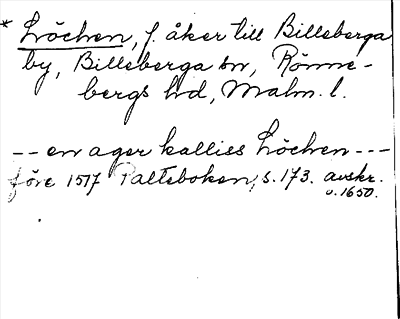 * Löchen, f. åker till Billeberga
by, Billeberga sn, Rönne-
bergs hd, Malm. l.
-- en ager kalliss Löchen ---
före 1517 Palteboken, s. 173. avskr.
o. 1650.